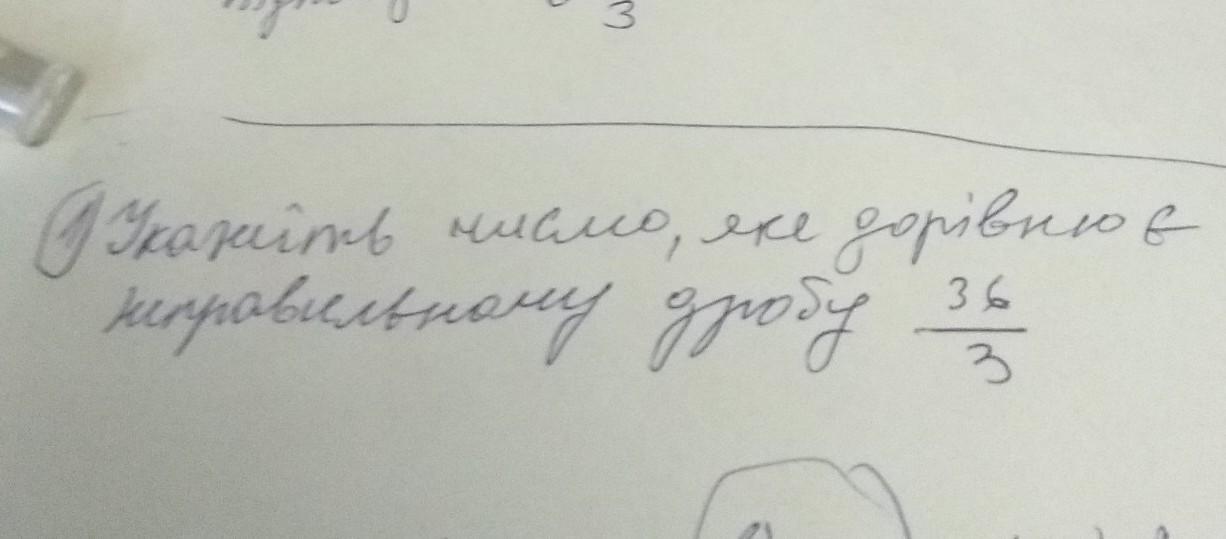 3
1) Укажіть число, яке дорівнює
неправильному дробу 36/3